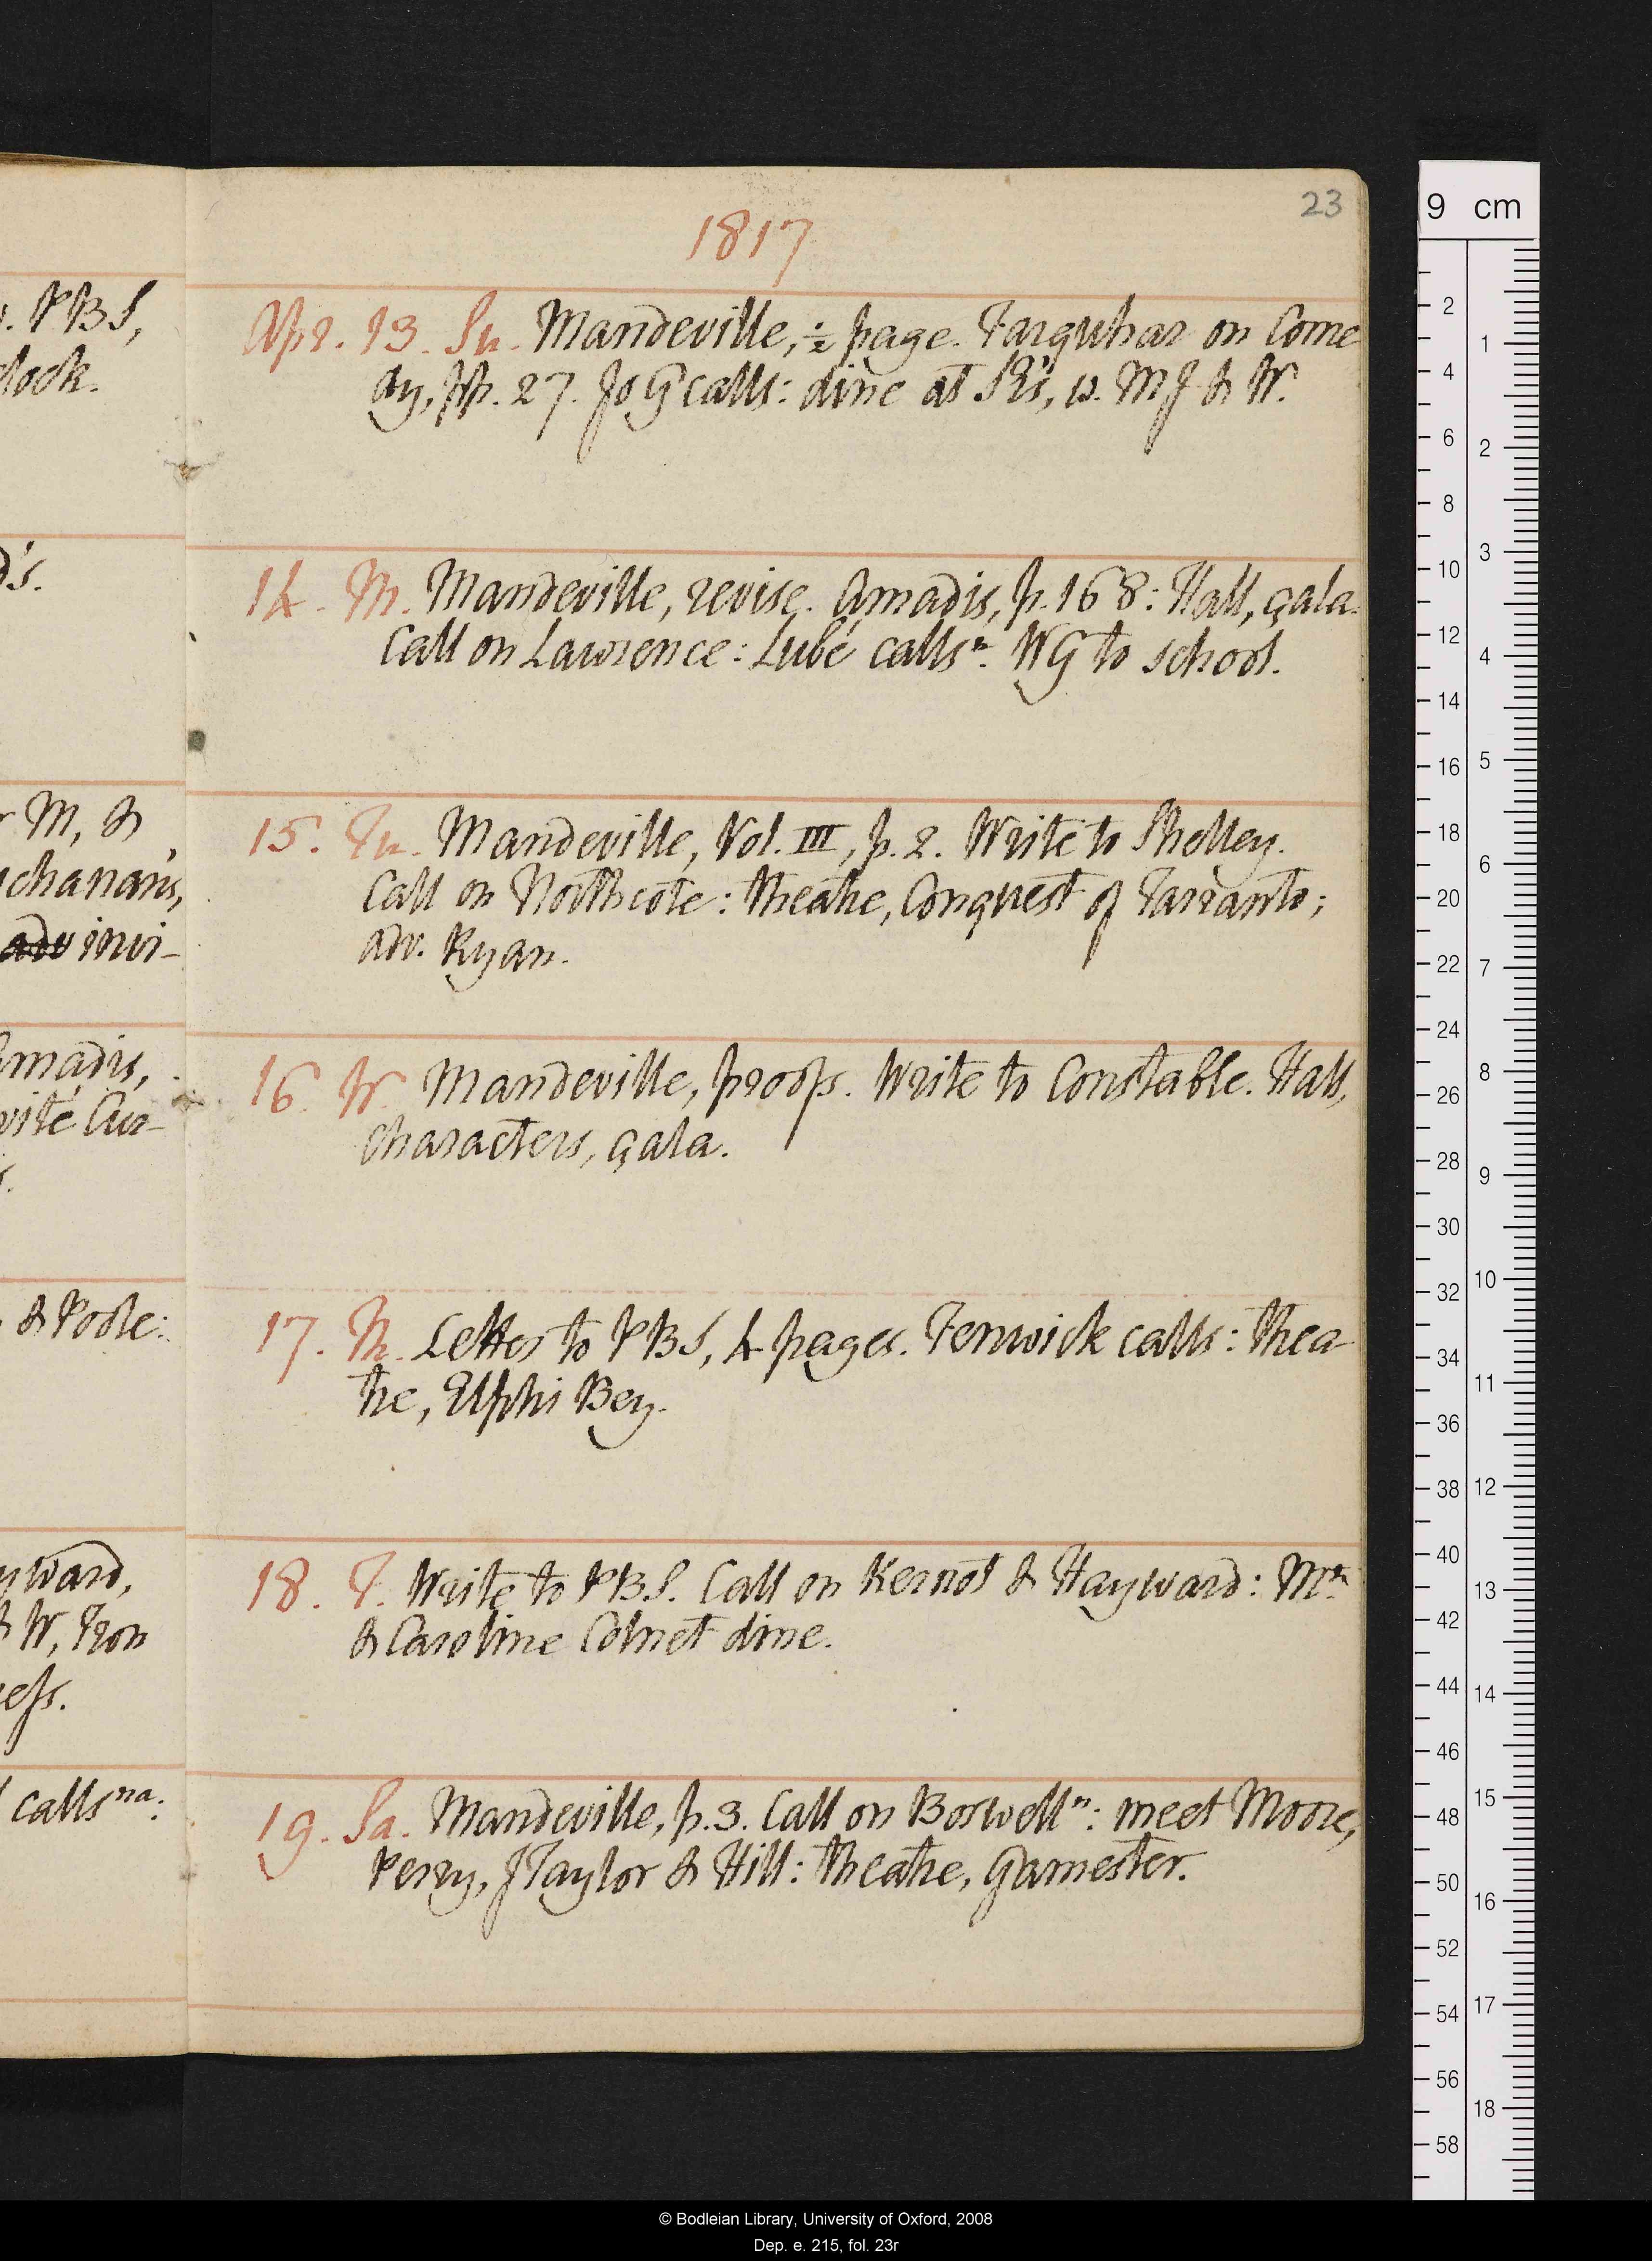 23
1817
v. PBS,
clock.
d's.
r M, &
uchanan's,
adv invi-
Amadis,
vite Cur-
s.
& Poole:
yward,
& W, Iron
ess.
calls na.
Apr. 13. Su. Mandeville, ½ page. Farquhar on Come
dy, pp. 27. Jos G calls: dine at Ks's, w. MJ & W.
14. M. Mandeville, revise. Amadis, p. 168: Hall, çala.
Call on Lawrence: Lubé calls n. WG to school.
15. Tu. Mandeville, Vol. III, p. 2. Write to Shelley.
Call on Northcote: theatre, Conquest of Taranto;
adv. Ryan.
16. W. Mandeville, proofs. Write to Constable. Hall,
characters, çala.
17. Th. Letter to PBS, 4 pages. Fenwick calls: thea-
tre, Elphi Bey.
18. F. Write to PBS. Call on Kernot & Hayward: Mrs
& Caroline Colnet dine.
19. Sa. Mandeville, p. 3. Call on Boswell n: meet Moore,
Perry, J Taylor & Hill: theatre, Gamester.
9 cm
2
4
6
8
10
12
14
16
18
20
22
24
26
28
30
32
34
36
38
40
42
44
46
48
50
52
54
56
58
1
2
3
4
5
6
7
8
9
10
11
12
13
14
15
16
17
18
© Bodleian Library, University of Oxford, 2008
Dep. e. 215, fol. 23r